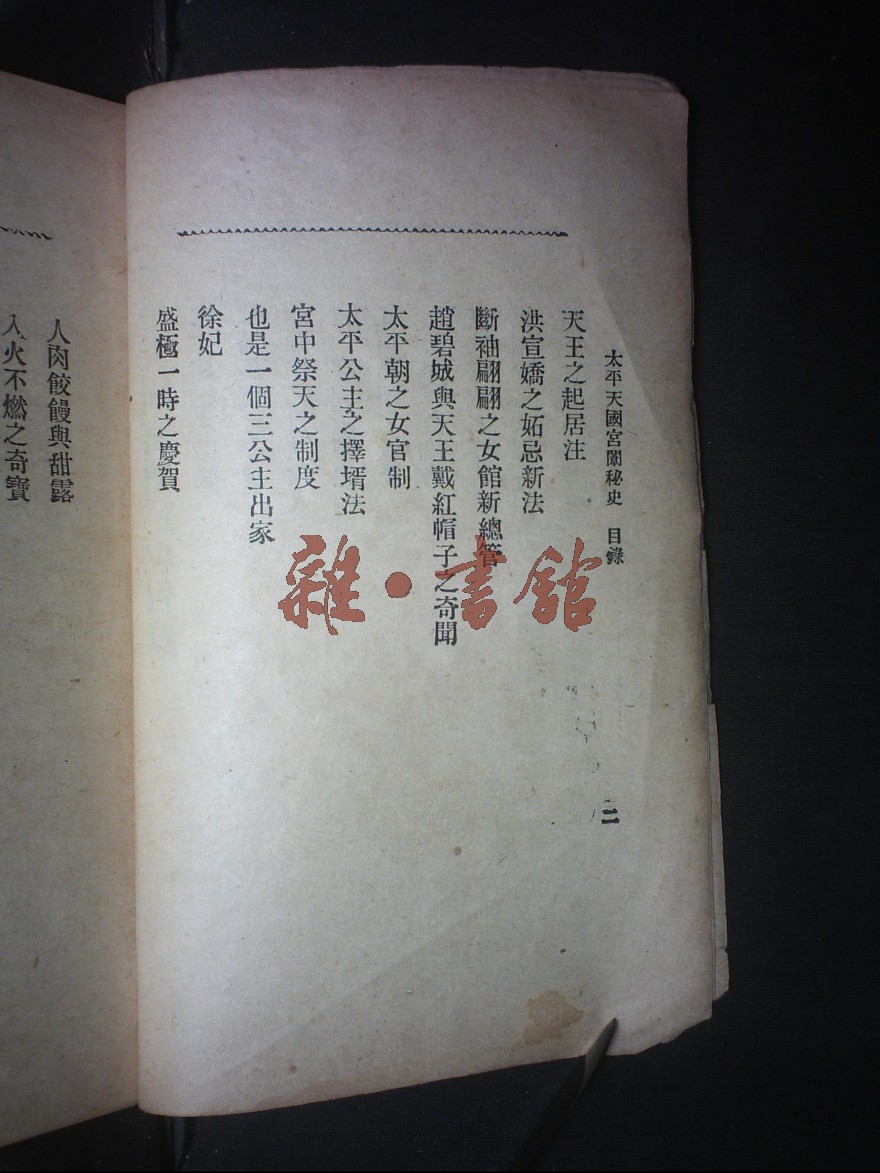 太平天國宮闈秘史　目錄
二
天王之起居注
洪宣嬌之妬忌新法
斷袖翩翩之女館新總管
趙碧城與天王戴紅帽子之奇聞
太平朝之女官制
太平公主之擇壻法
宮中祭天之制度
也是一個三公主出家
徐妃
盛極一時之慶賀
人肉餃饅與甜露
入火不燃之奇寶
雜·書館